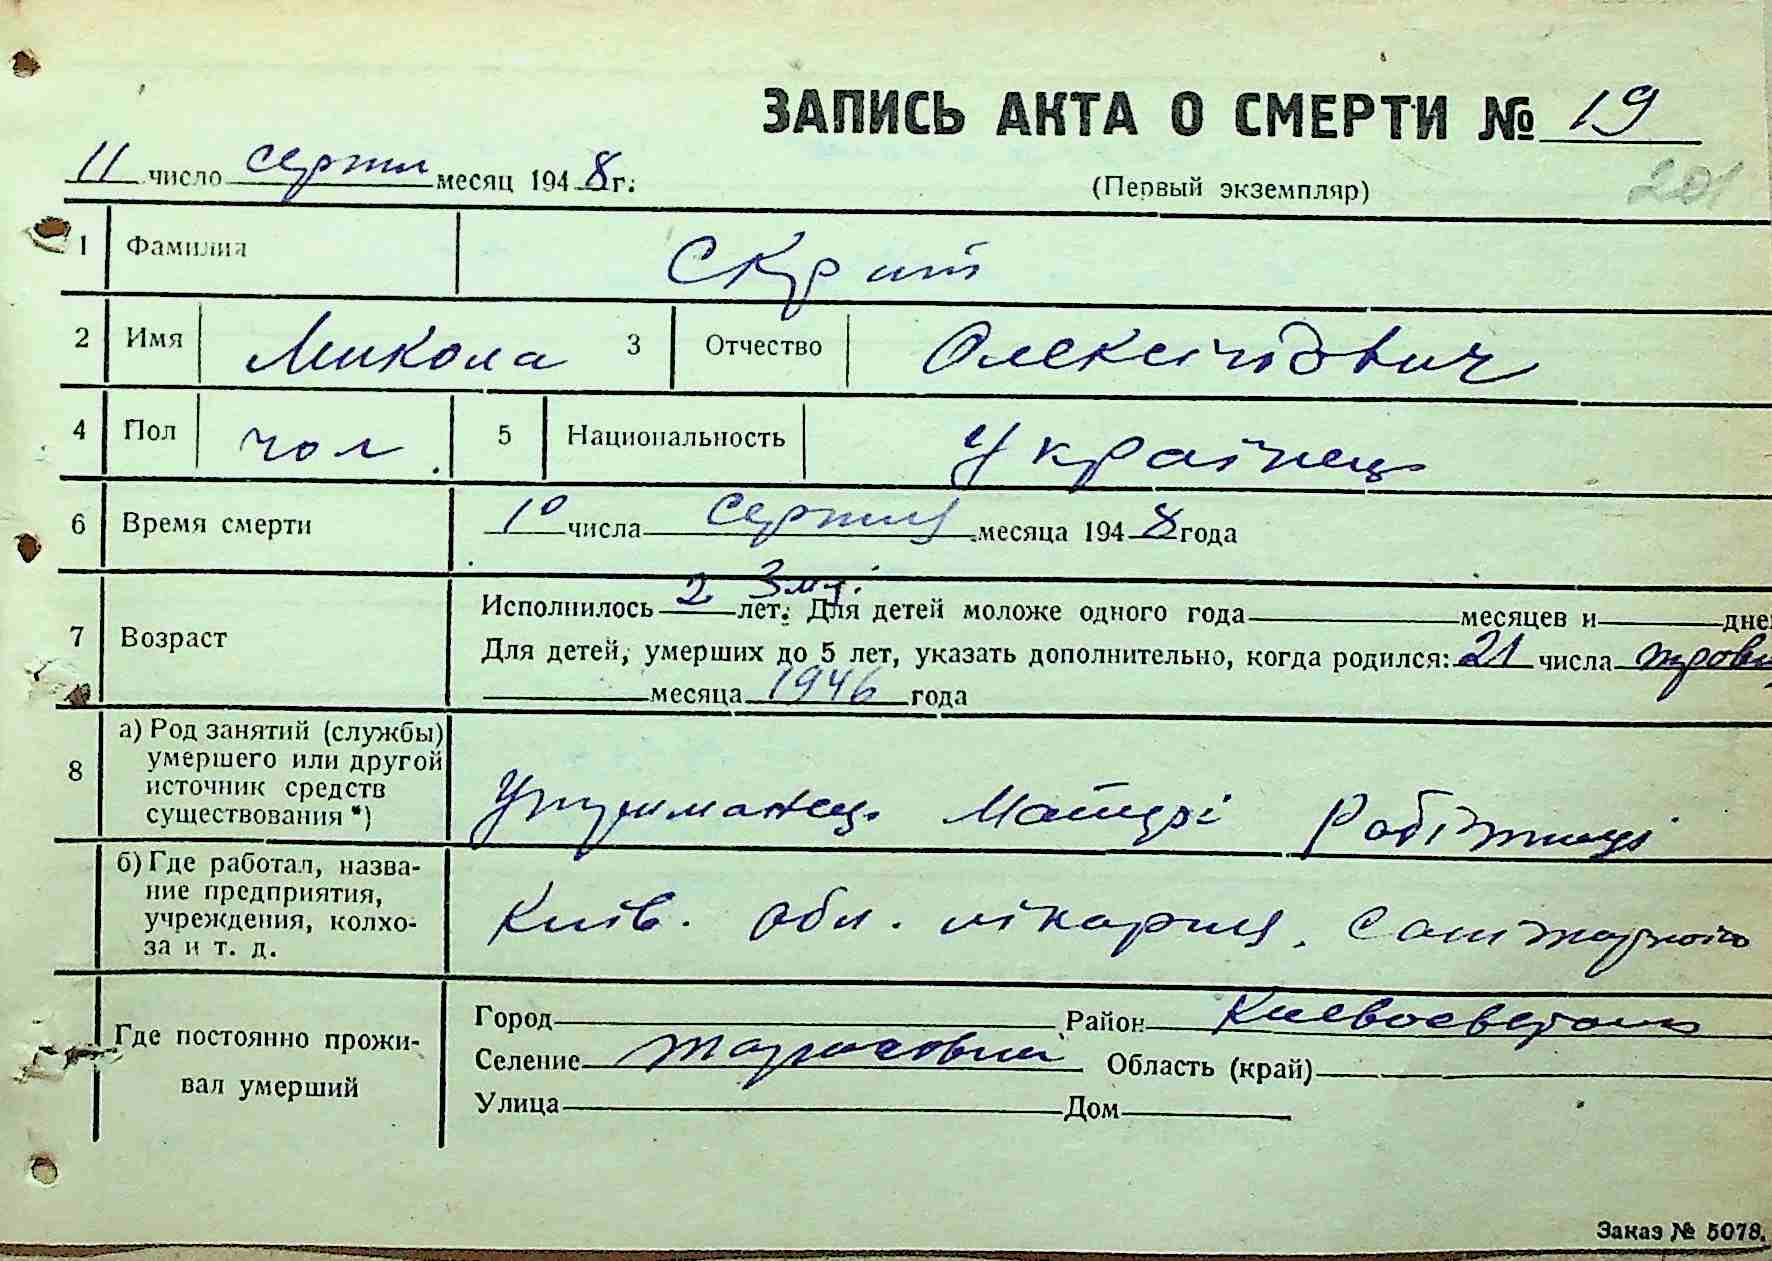 ЗАПИСЬ АКТА О СМЕРТИ № 19
11 число серпня месяц 1948 г.
(Первый экземпляр)
201
1 Фамилия Скрит
2 Имя Микола 3 Отчество
4 Пол чол. 5 Национальность Українець
6 Время смерти 10 числа серпня месяца 1948 года
7 Возраст
Исполнилось 2 лет. 3 м-ц. Для детей моложе одного года месяцев и дне
Для детей, умерших до 5 лет, указать дополнительно, когда родился: 21 числа
месяца 1946 года
8 а) Род занятий (службы) умершего или другой источник средств существования *)
Утриманець Матері робітниці
б) Где работал, название предприятия, учреждения, колхоза и т. д.
Київ. обл. лікарня.
Где постоянно проживал умерший
Город Район
Селение Область (край)
Улица Дом
Заказ № 5078.